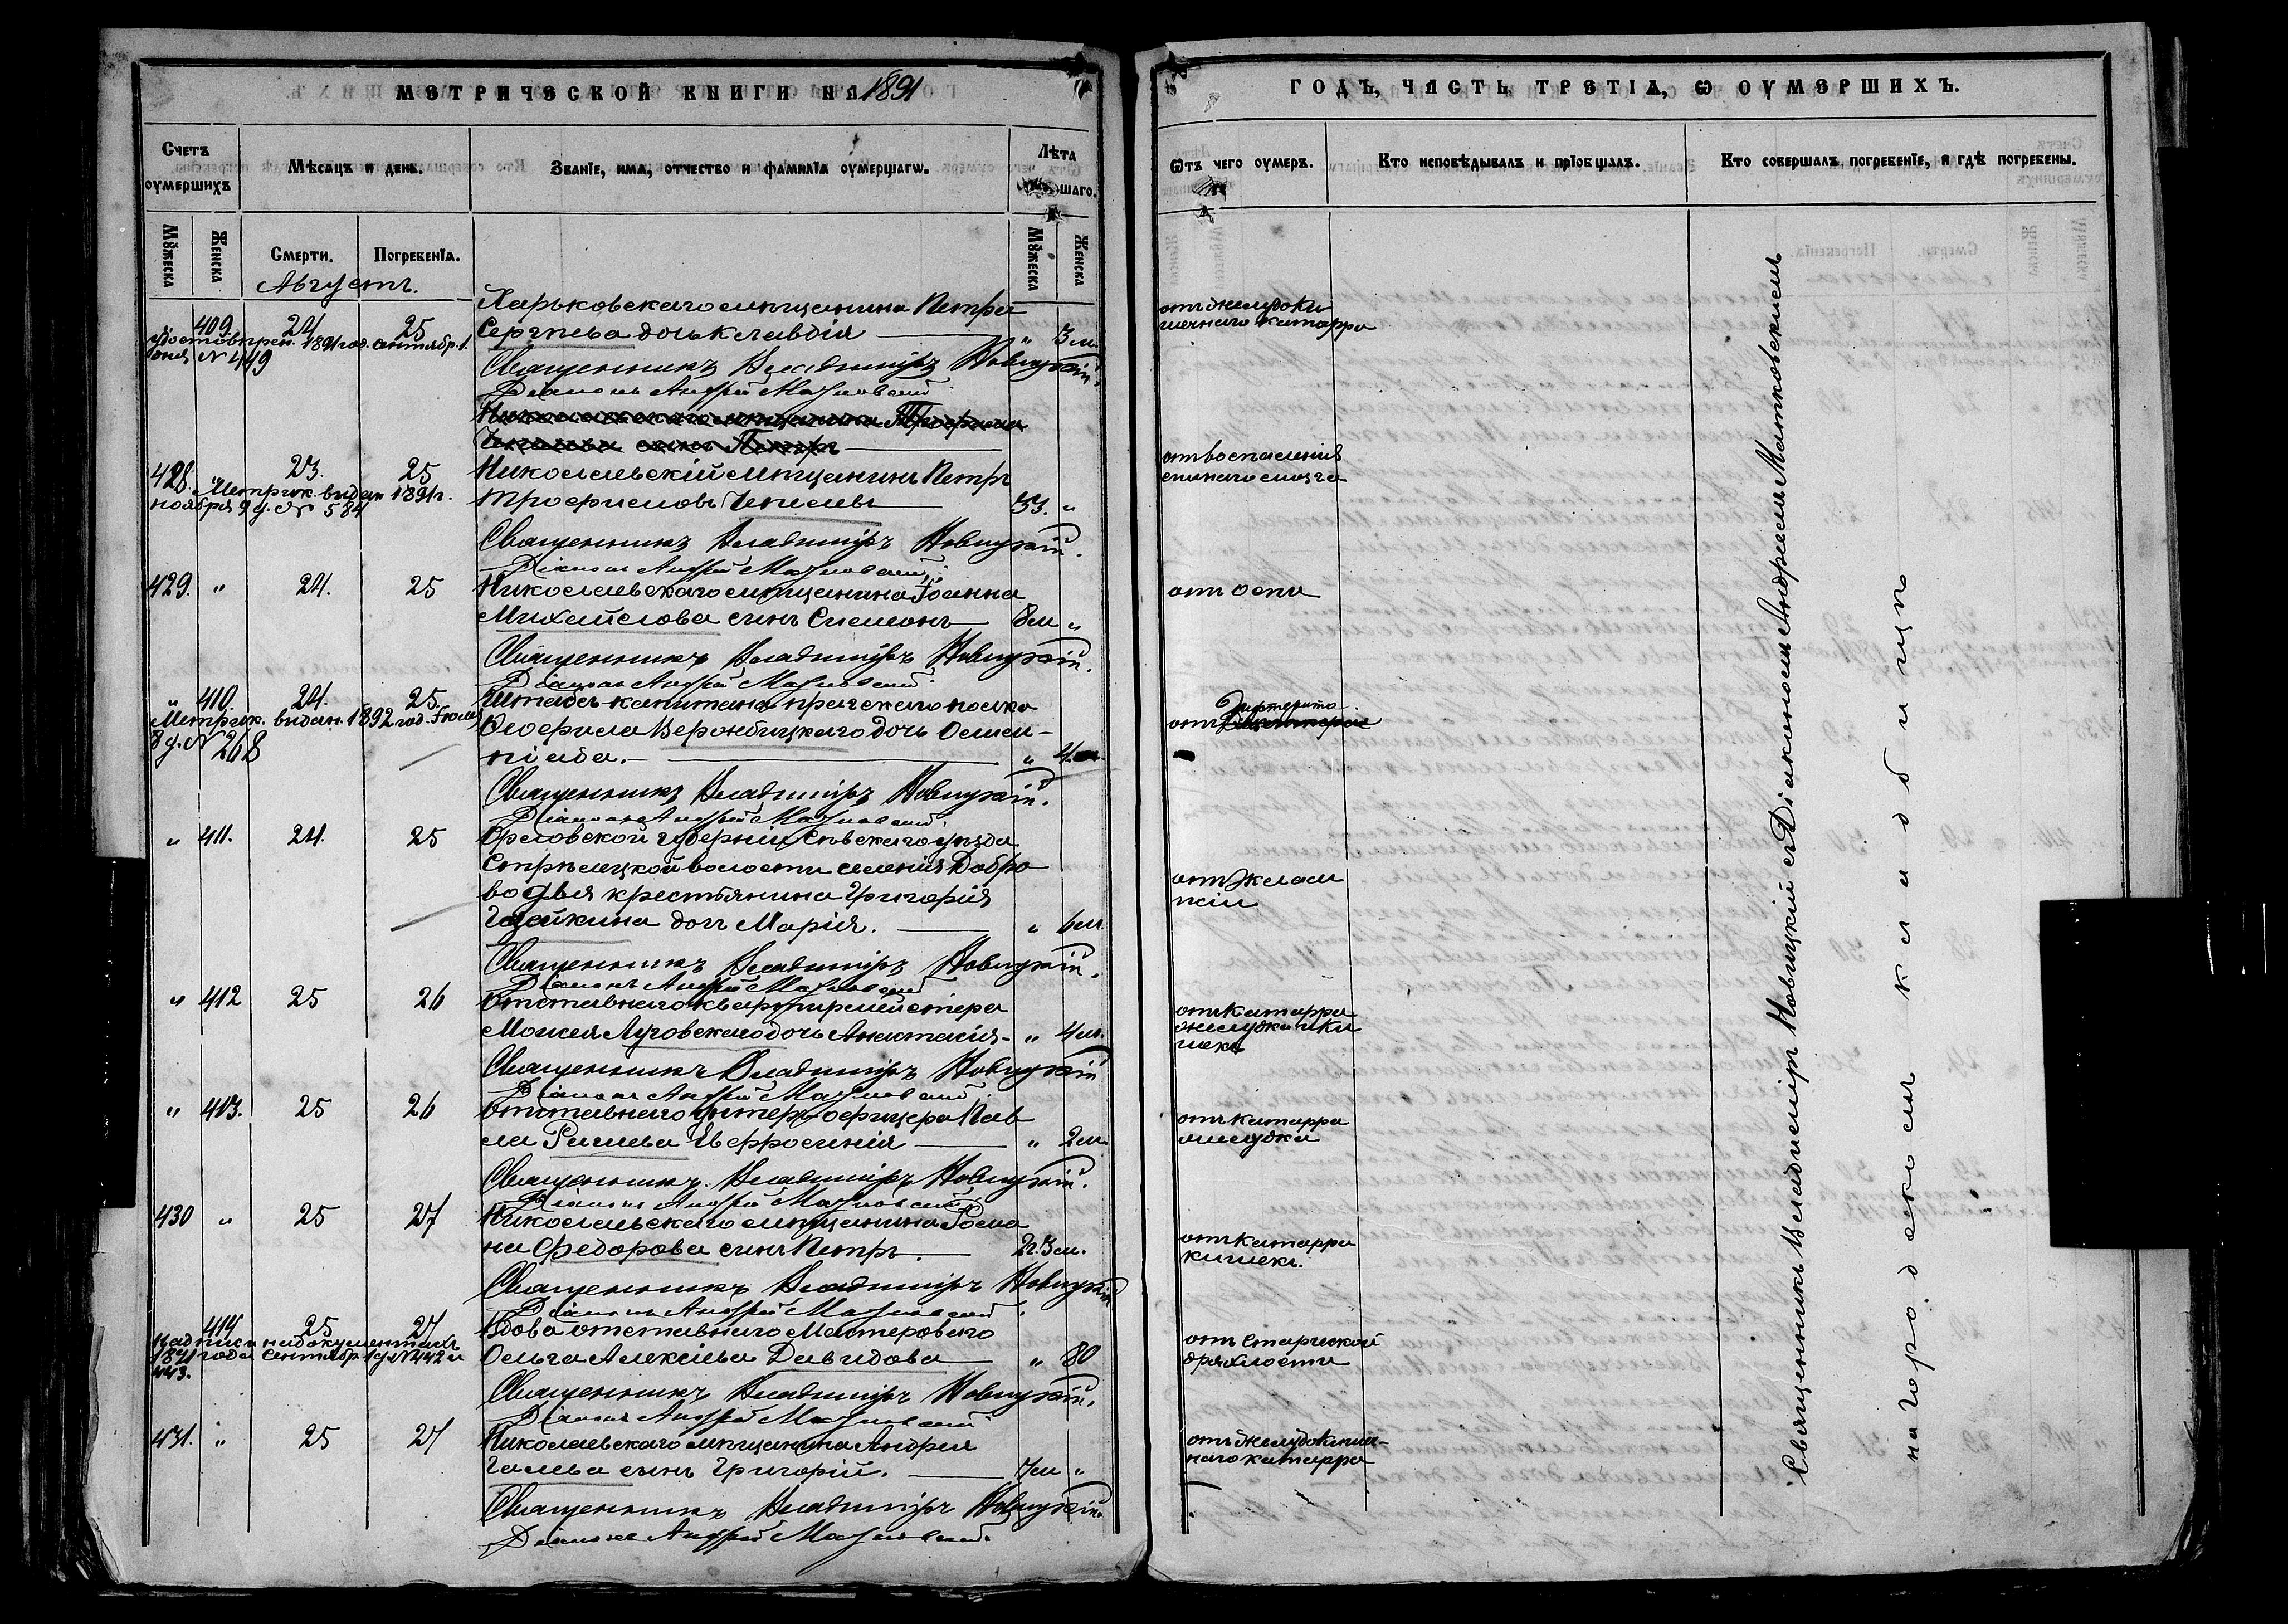 МЕТРИЧЕСКОЙ КНИГИ НА 1891
Счетъ оумершихъ
Мѣсяцъ и день.
Званіе, имя, отчество и фамилія оумершагѡ.
Лѣта
шаго.
Мꙋжеска
Женска
Смерти.
Погребенія.
Мꙋжеска
Женска
Августъ.
Харьковскаго мѣщанина Петра
409. 24 25 Сергѣева дочь Клавдія " 3 м.
1891 год. сентябр. 1.
дня № 449
Священникъ Владиміръ Новицкій.
Діаконъ Андрей
428. " 23. 25 Николаевскій мѣщанинъ Петръ
Метрик. выдан 1891 г.
ноября 9 д. № 584
Трофимовъ Чепелевъ 53. "
Священникъ Владиміръ Новицкій.
Діаконъ Андрей
429. " 24. 25 Николаевскаго мѣщанина Іоанна
Михайлова сынъ Симеонъ 8 м "
Священникъ Владиміръ Новицкій.
Діаконъ Андрей
" 410. 24. 25. Штабсъ-капитана пражскаго полка
Метрик. выдан. 1892 год. Іюля
8 д. № 268
Ѳеофила Веронбицкаго дочь Олим-
піада. " 4
Священникъ Владиміръ Новицкій.
Діаконъ Андрей
" 411. 24. 25 Орловской губерніи Сѣвскаго уѣзда
Стрѣлецкой волости селенія Добро
водья крестьянина Григорія
дочь Марія. " 6 м.
Священникъ Владиміръ Новицкій.
Діаконъ Андрей
" 412 25 26 Отставнаго квартирмейстера
Моисея Луговскаго дочь Анастасія - " 4 м.
Священникъ Владиміръ Новицкій
Діаконъ Андрей
" 413. 25 26 Отставнаго унтеръ-офицера Пав
ла Евфросинія " 2 м.
Священникъ Владиміръ Новицкій.
Діаконъ Андрей
430 " 25 27 Николаевскаго мѣщанина Рома
на Федорова сынъ Петръ. 2 г. 3 м.
Священникъ Владиміръ Новицкій
Діаконъ Андрей
414 25 27 Вдова отставнаго Мастероваго
Надпись на документахъ
1891 года Сентябр. 1 д. № 442 и
443.
Ольга Алексѣева Давидова " 80
Священникъ Владиміръ Новицкій.
Діаконъ Андрей
431. " 25 27 Николаевскаго мѣщанина Андрея
Галева сынъ Григорій. 7 м "
Священникъ Владиміръ Новицкій.
Діаконъ Андрей
ГОДЪ, ЧАСТЬ ТРЕТІѦ, Ѡ ОУМЕРШИХЪ.
Ѿтъ чего оумеръ.
Кто исповѣдывалъ и пріобщалъ.
Кто совершалъ погребеніе, и гдѣ погребены.
отъ желудоки
шечнаго катарра
отъ воспаленія
спинаго мозга
отъ оспы
отъ Дифтерита
отъ Эклам
псіи
отъ катарра
желудка и ки
шекъ
отъ катарра
желудка
отъ катарра
кишекъ.
отъ старческой
дряхлости
отъ желудокишеч-
наго катарра
Священникъ Владиміръ Новицкій съ Діакономъ Андреемъ Матковскимъ
на городскомъ кладбищѣ